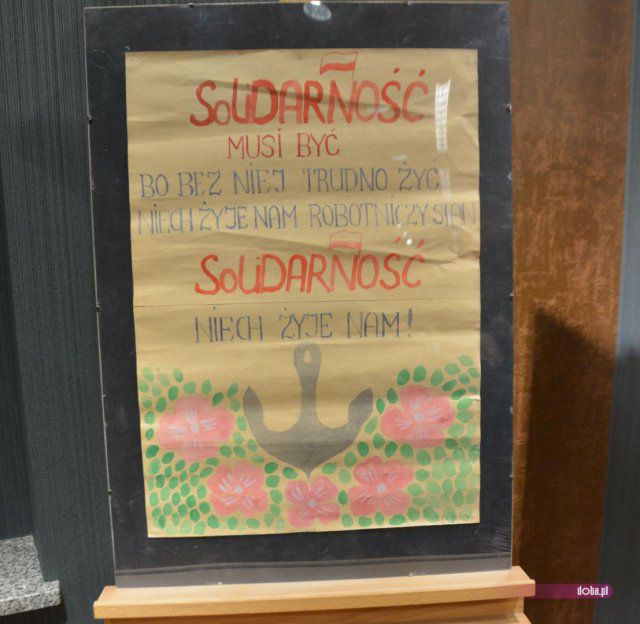 SOLIDARNOŚĆ
MUSI BYĆ
BO BEZ NIEJ TRUDNO ŻYĆ
NIECH ŻYJE NAM ROBOTNICZY STAN
SOLIDARNOŚĆ
NIECH ŻYJE NAM!
doba.pl